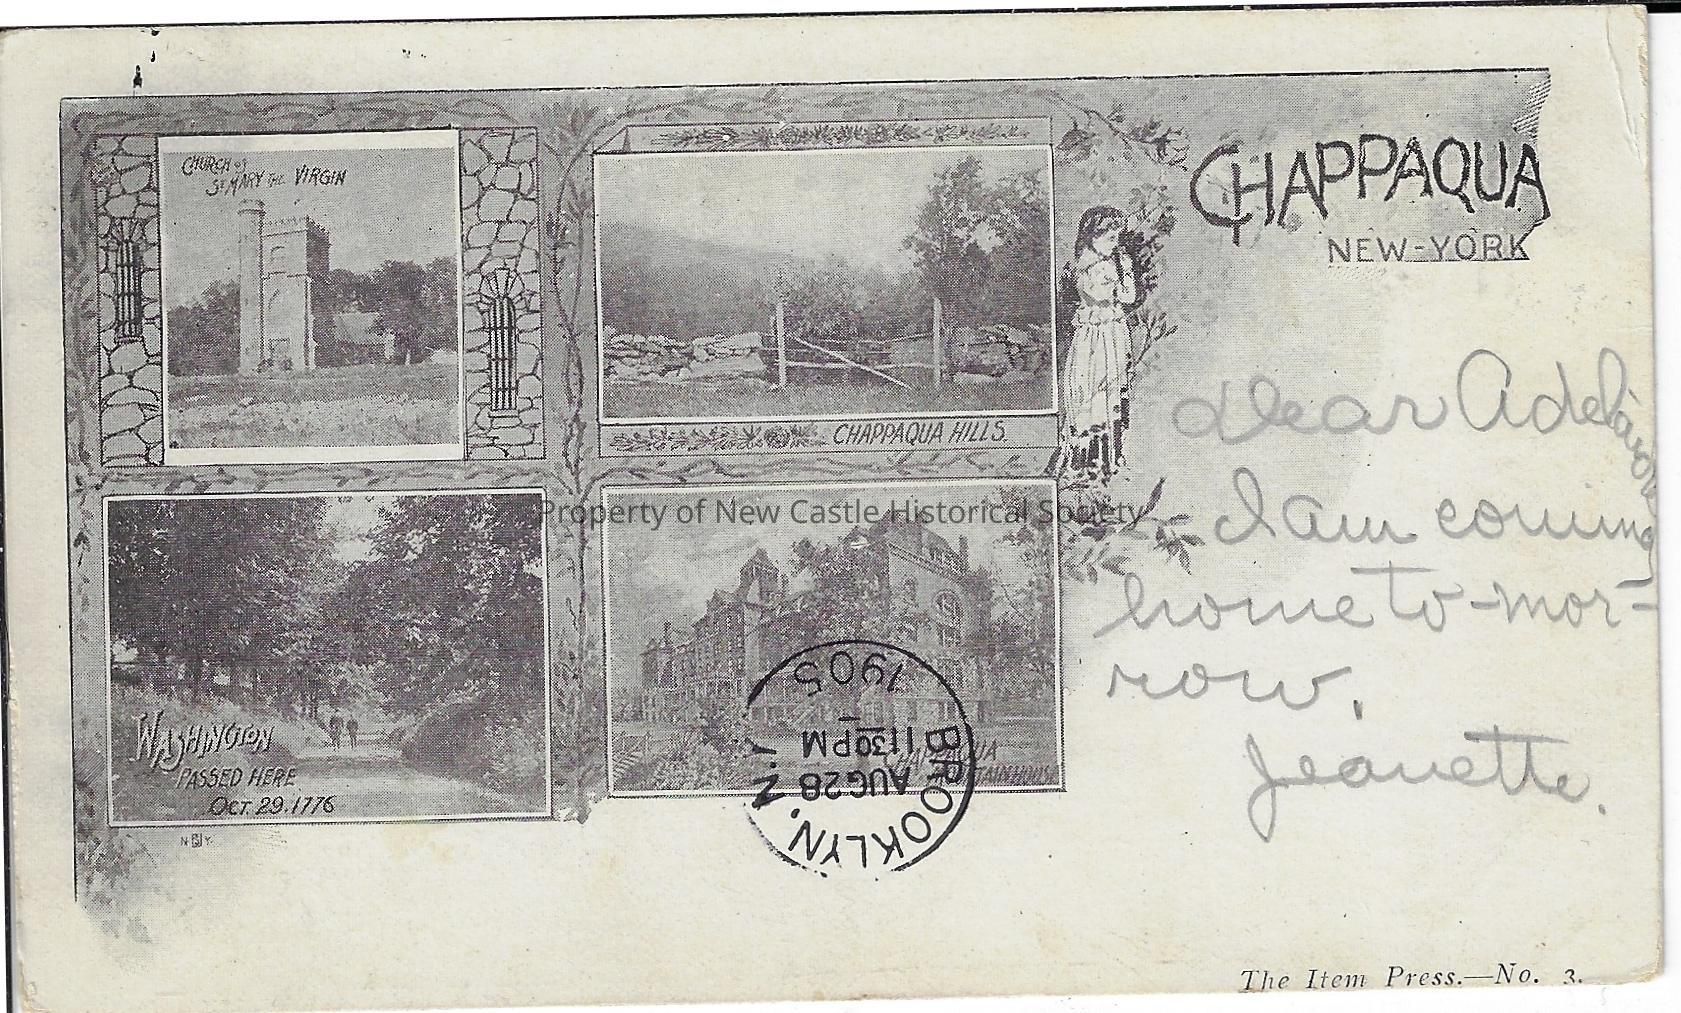 CHURCH of
ST MARY THE VIRGIN
CHAPPAQUA
NEW-YORK
CHAPPAQUA HILLS.
Dear Adelaide
I am coming
home to-mor-
row.
Jeanette.
Property of New Castle Historical Society
WASHINGTON
PASSED HERE
OCT. 29. 1776
CHAPPAQUA
MOUNTAIN HOUSE
BROOKLYN, N.Y.
AUG 28
1130 PM
1905
N Y
The Item Press.—No. 3.